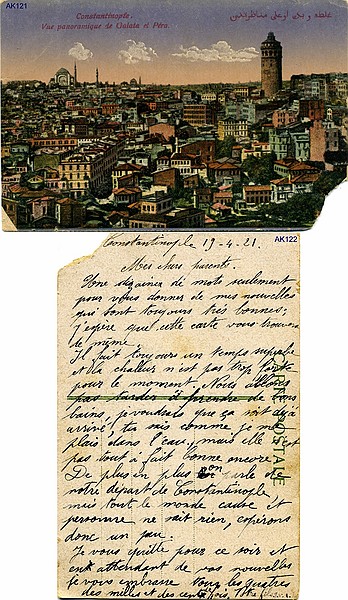 AK121
Constantinople.
Vue panoramique de Galata et Péra.
غلطه و بك اوغلى مناظرندن
AK122
Constantinople 19-4-21.
Mes chers parents.
Une dizaines de mots seulement
pour vous donner de mes nouvelles
qui sont toujours très bonnes;
j'espère que cette carte vous trouvera
de même.
Il fait toujours un temps superbe
et la chaleur n'est pas trop forte
pour le moment. Nous allons
pas tarder à prendre de bons
bains, je voudrais que ça soit déjà
arrivé, tu sais comme je me
plais dans l'eau, mais elle n'est
pas tout à fait bonne encore.
De plus en plus on parle de
notre départ de Constantinople,
mais tout le monde cause et
personne ne sait rien, espérons
donc un peu.
Je vous quitte pour ce soir et
en attendant de vos nouvelles
je vous embrasse tous les quatres
des milles et des cents fois.
CARTE POSTALE